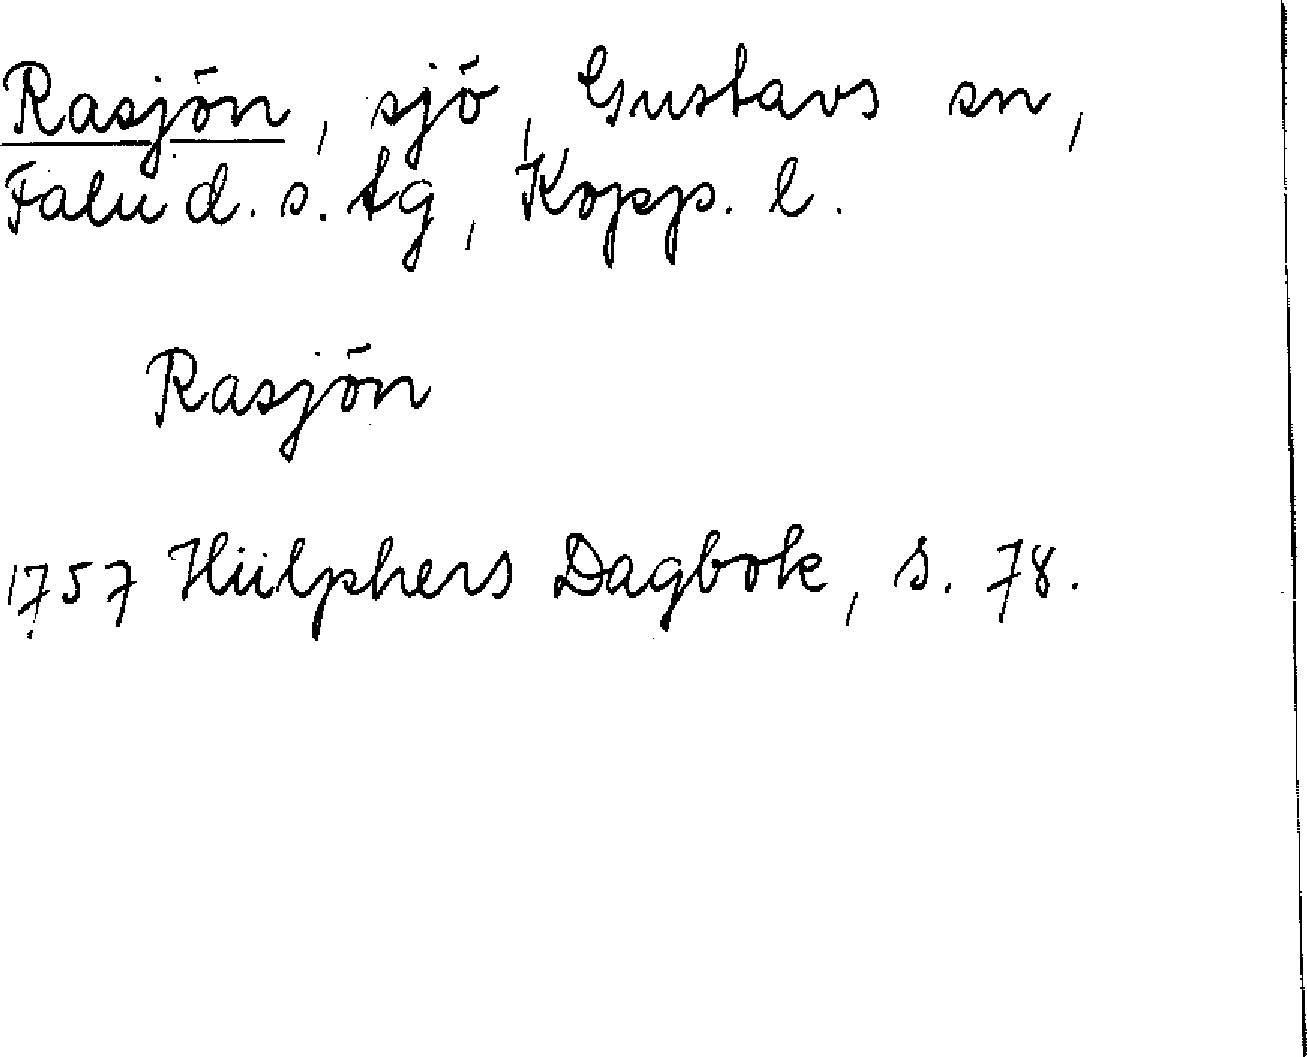 Rasjön, sjö, Gustavs sn,
Falu d. s. tg, Kopp. l.
Rasjön
1757 Hülphers Dagbok, s. 78.